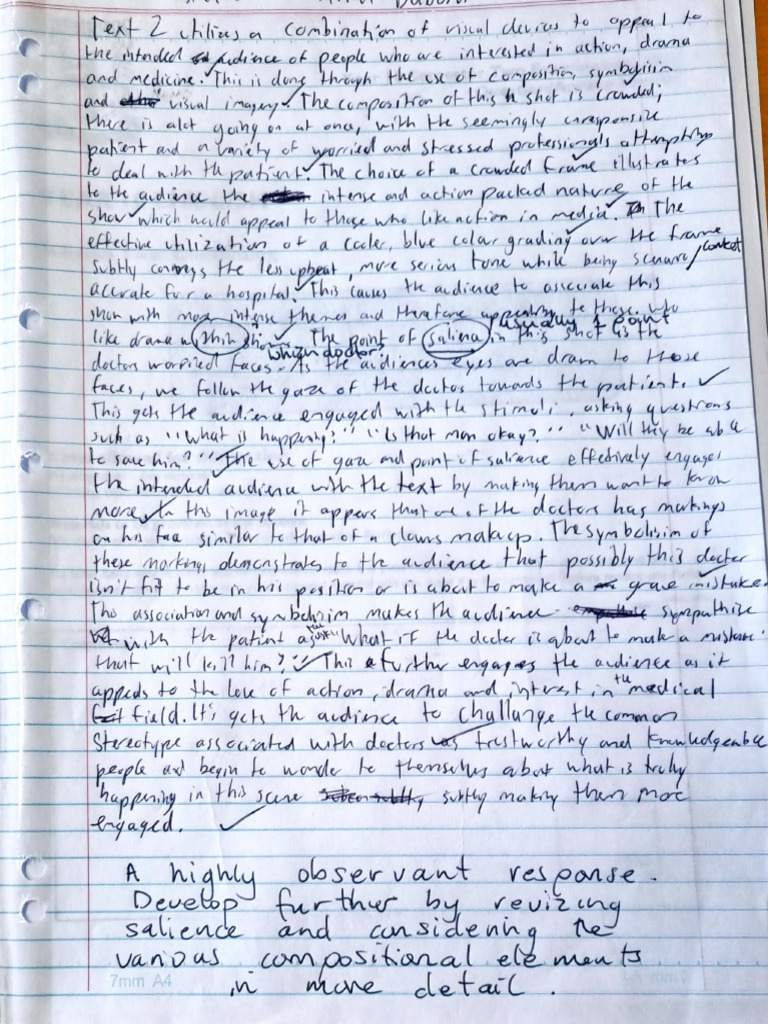 Text 2 utilizes a combination of visual devices to appeal to
the intended audience of people who are interested in action, drama
and medicine. This is done through the use of composition, symbolisim
and visual imagery. The composition of this shot is crowded;
there is alot going on at once, with the seemingly unresponsive
patient and a variety of worried and stressed professionals attempting
to deal with the patient. The choice of a crowded frame illustrates
to the audience the intense and action packed nature of the
show which would appeal to those who like action in media. The
effective utilization of a cooler, blue colour grading over the frame
subtly conveys the less upbeat, more serious tone while being scenario/context
accurate for a hospital. This causes the audience to associate this
show with more intense themes and therefore appealing to those who
usually 1 point
like drama within The point of salience in this shot is the
which doctor?
doctors worried faces. As the audiences eyes are drawn to those
faces, we follow the gaze of the doctors towards the patient.
This gets the audience engaged with the stimuli, asking questions
such as "What is happening?" "Is that man okay?" "Will they be able
to save him?" The use of gaze and point of salience effectively engages
the intended audience with the text by making them want to know
more. In this image it appears that one of the doctors has markings
on his face similar to that of a clowns makeup. The symbolisim of
these markings demonstrates to the audience that possibly this doctor
isn't fit to be in his position or is about to make a grave mistake.
This association and symbolisim makes the audience sympathize
with the patient as "What if the doctor is about to make a mistake
that will kill him?" This further engages the audience as it
appeals to the love of action, drama and interest in the medical
field. It's gets the audience to challange the common
stereotype associated with doctors as trustworthy and knowledgeable
people and begin to wonder to themselves about what is truly
happening in this scene subtly making them more
engaged.
A highly observant response.
Develop further by revizing
salience and considering the
various compositional elements
in more detail.
7mm A4